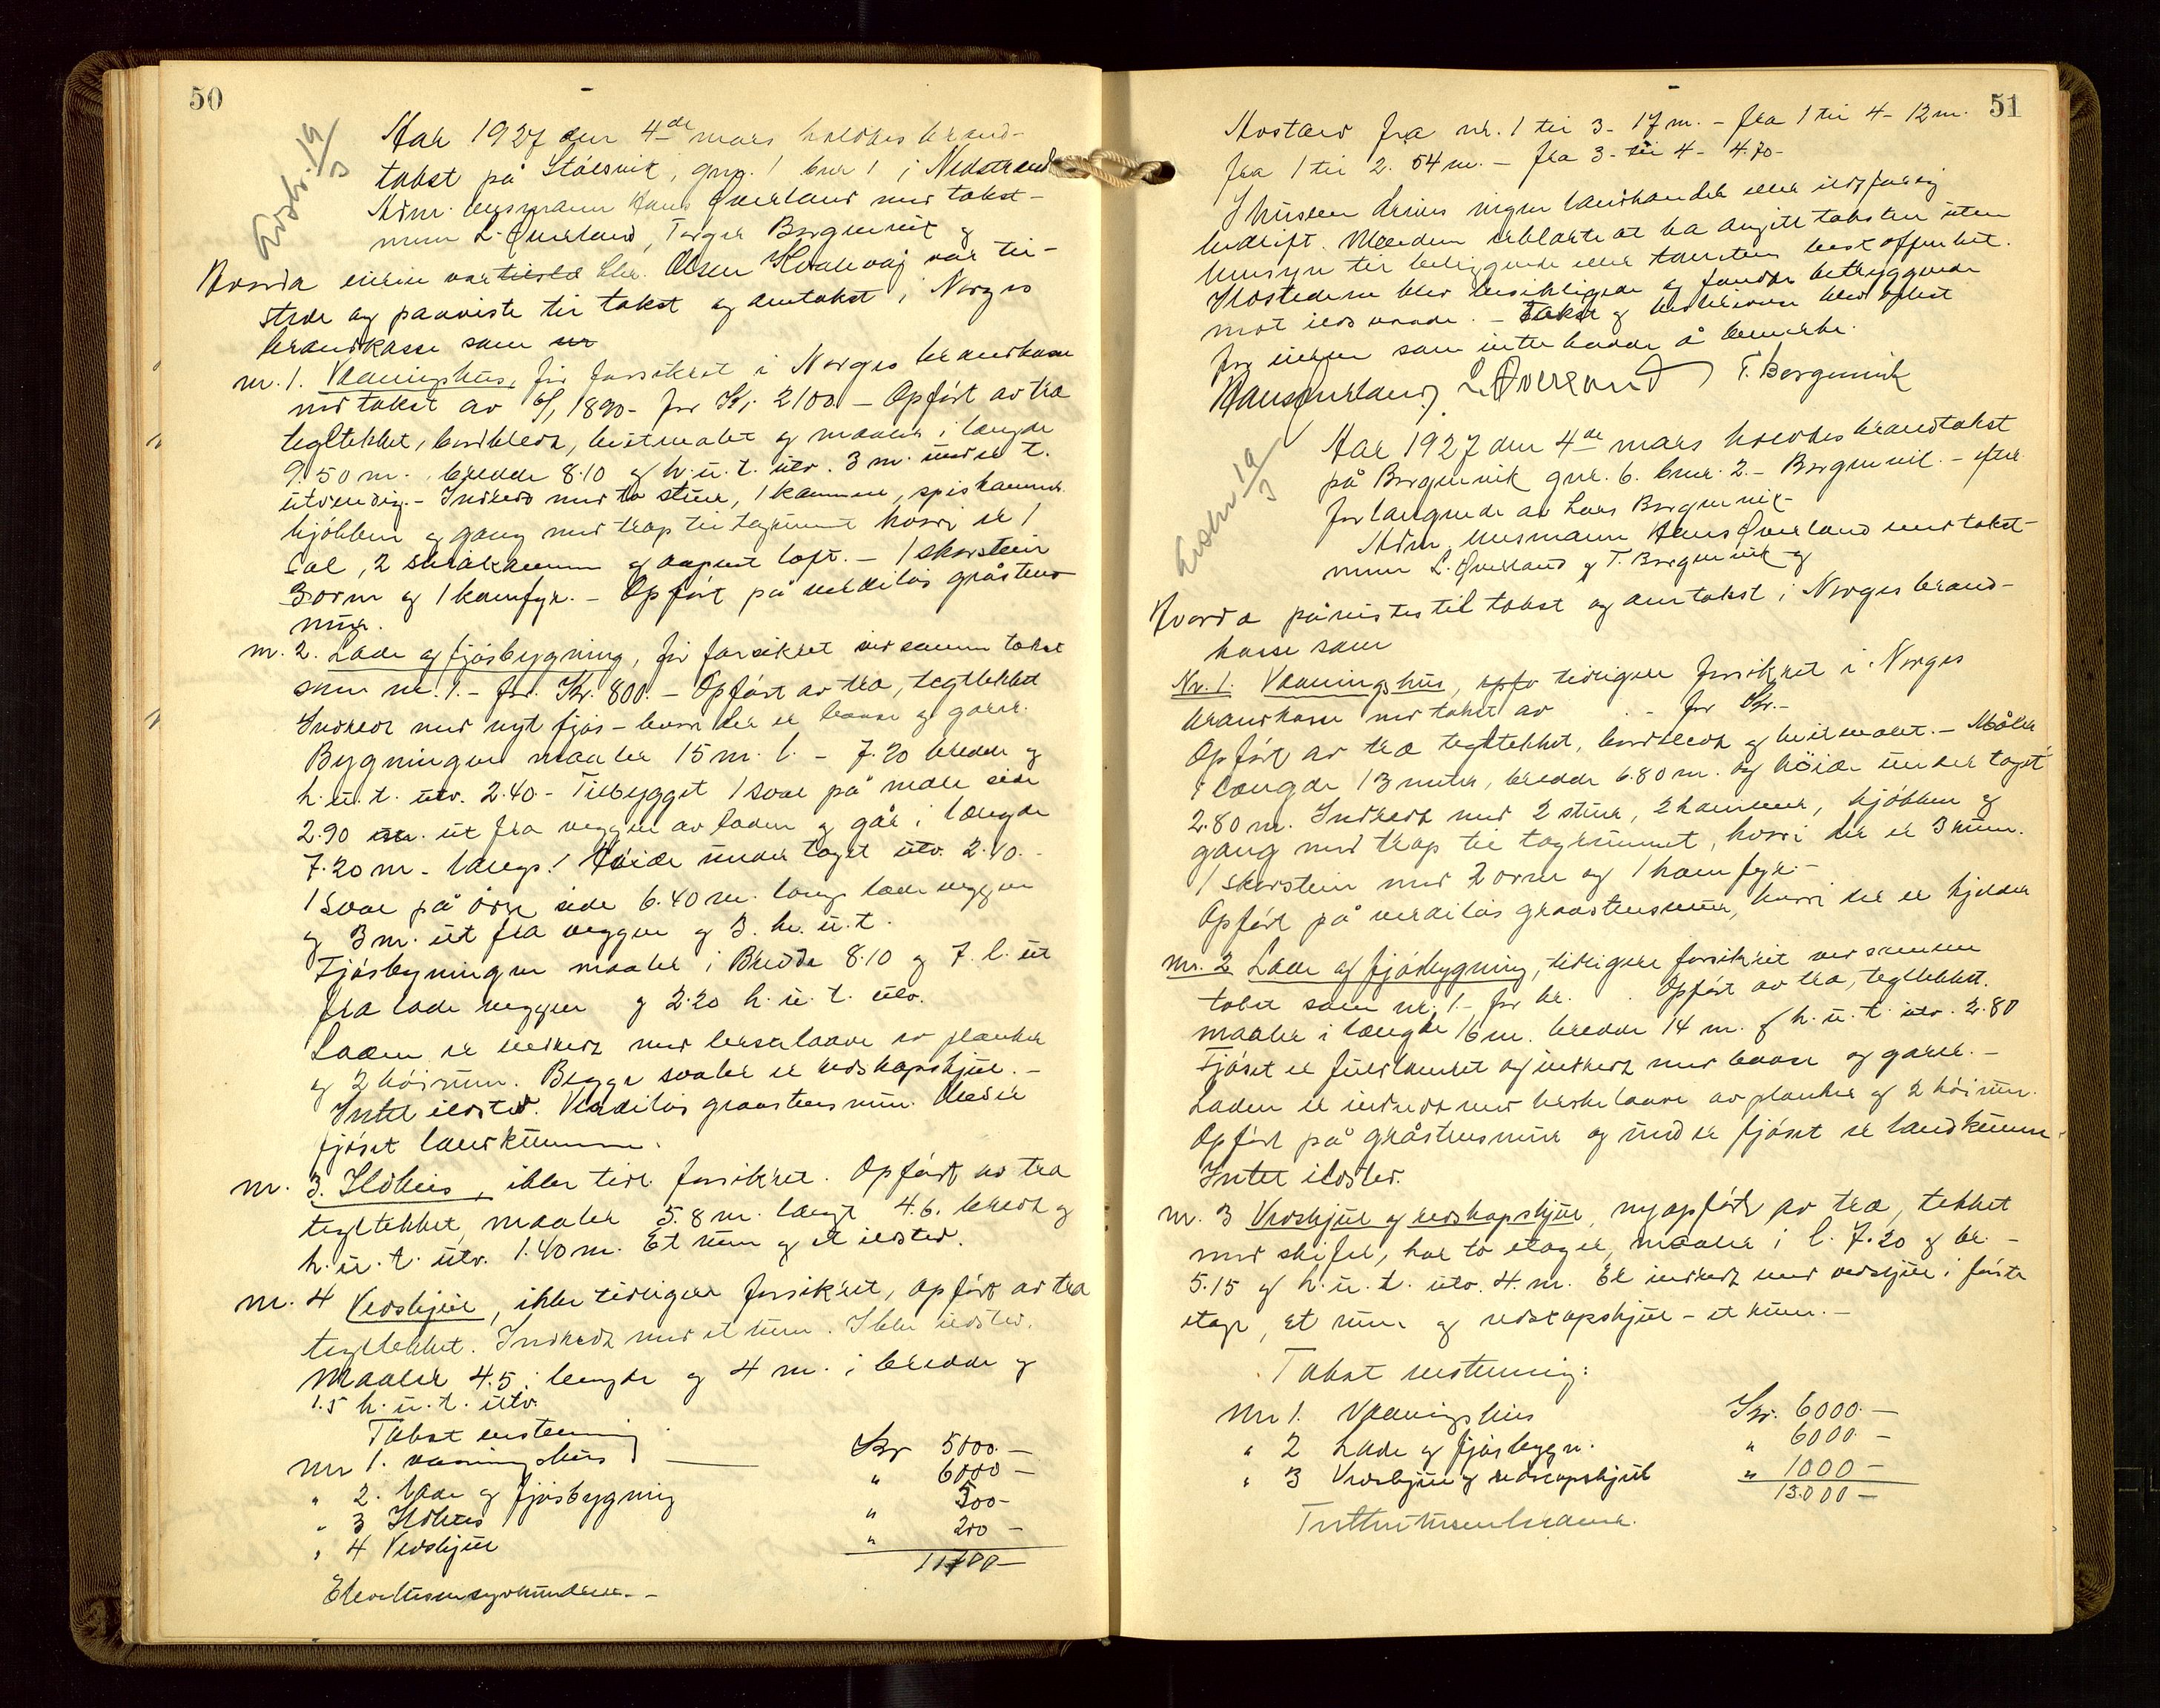 50
Aar 1927 den 4de mars holdes brand-
takst på Stølsvik, gnr. 1 bnr 1 i Nedstrand
Adm. lensmann Hans Øverland med takst-
menn L. Øverland, Torger Borgenvik og
Hvorda eieren Chr. Olsen var til-
stede og paaviste til takst og omtakst i Norges
brandkasse som
nr. 1. Vaaningshus, før forsikret i Norges brandkasse
ved takst av 6/1 1890 - for Kr 2100. - Opført av træ
tegltekket, bordklædt, hvitmalet og maaler i længde
9.50 m. bredde 8.10 og h. u. t. utv. 3 m. under t.
utvendig. - Indredd med to stuer, 1 kammer, spiskammer
kjøkken og gang med trap til tagrummet hvori er 1
sal, 2 skråkammer og aapent loft. - 1 skorstein
3 orne og 1 komfyr. - Opført på verdiløs gråstens
mur.
nr. 2. Lade og fjøsbygning, før forsikret ved samme takst
som nr. 1. - for Kr. 800. - Opført av træ, tegltekket
Indredt med nyt fjøs - hvori der er baase og golv.
Bygningen maaler 15 m. l. - 7.20 bredde og
h. u. t. utv. 2.40 - Tilbygget 1 sval på nedre side
2.90 m. ut fra veggen av laden og går i længde
7.20 m. langs! Høide under taget utv. 2.10. -
1 sval på øvre side 6.40 m. langs ladeveggen
og 3 m. ut fra veggen og 3. h. u. t.
Fjøsbyningen maaler i Bredde 8.10 og 7. l. ut
fra lade veggen og 2.20 h. u. t. utv.
Laden er indredt med treskelaave av planker
og 2 høirum. Begge svaler er redskapskjul. -
Intet ildsted. Verdiløs graastensmur. Under
fjøset landkummer.
nr. 3. Ildhus, ikke tidl. forsikret. Opført av træ
tegltekket, maaler 5.8 m. langt 4.6. bredt og
h. u. t. utv. 1.40 m. Et rum og et ildsted.
nr. 4 Vedskjul, ikke tidligere forsikret, opført av træ
tegltekket. Indredt med et rum. Ikke ildsted.
Maaler 4.5 i længde og 4 m. i bredde og
1.5 h. u. t. utv.
Takst ansetning
Nr 1. vaaningshus Kr 5000. -
" 2. Lade og fjøsbygning " 6000 -
" 3 Ildhus " 500 -
" 4 Vedskjul " 200 -
11700 -
51
Avstand fra nr. 1 til 3 - 17 m. - fra 1 til 4 - 12 m.
fra 1 til 2. 54 m. - fra 3 - til 4 - 4.70 -
I husene drives ingen landhandel eller ildsfarlig
bedrift. Mændene erklærte at ha angitt taksten uten
hensyn til beliggende eller tomtens beskaffenhet.
Ildstedene blev besiktiget og fundne betryggende
mot ildsvaade. - Takst og beskrivelse blev oplest
for eieren som intet hadde å bemerke.
Hans Øverland L. Øverland T. Borgenvik
Aar 1927 den 4de mars holdes brandtakst
på Borgenvik gnr. 6. bnr. 2. - Borgenvik. - efter
forlangende av Lars Borgenvik -
Adm. lensmann Hans Øverland med takst-
menn L. Øverland og T. Borgenvik og
Hvorda påvistes til takst og omtakst i Norges brand-
kasse som
Nr. 1. Vaaningshus, tidligere forsikret i Norges
brandkasse ved takst av . - for Kr. -
Opført av træ tegltekket, bordklædt og hvitmalet. - Måler
i længde 13 meter, bredde 6.80 m. og høide under taget
2.80 m. Indredt med 2 stuer, 2 kammer, kjøkken og
gang med trap til tagrummet, hvori der er 3 rum.
1 skorstein med 2 orne og 1 komfyr. -
Opført på verdiløs graastensmur, hvori der er kjelder
Nr. 2 Lade og fjøsbygning, tidligere forsikret ved samme
takst som nr. 1. - for kr. . Opført av træ, tegltekket.
maaler i længde 16 m. bredde 14 m. og h. u. t. utv. 2.80
Fjøset er indredt med baase og golv. -
Laden er indredt med treskelaave av planker og 2 høirum.
Opført på gråstensmur og under fjøset er landkummer.
Intet ildsted.
nr. 3 Vedskjul og redskapskjul, nyopført av træ, tekket
med skifer, har to etager, maaler i l. 7.20 og br. -
5.15 og h. u. t. utv. 4. m. Er indredt med vedskjul i første
etage, et rum og redskapskjul - et rum. -
Takst ansetning:
Nr 1. Vaaningshus Kr. 6000. -
" 2 Lade og fjøsbygn. " 6000 -
" 3 Vedskjul og redskapskjul " 1000 -
13.000 -
Trettentusenkroner.